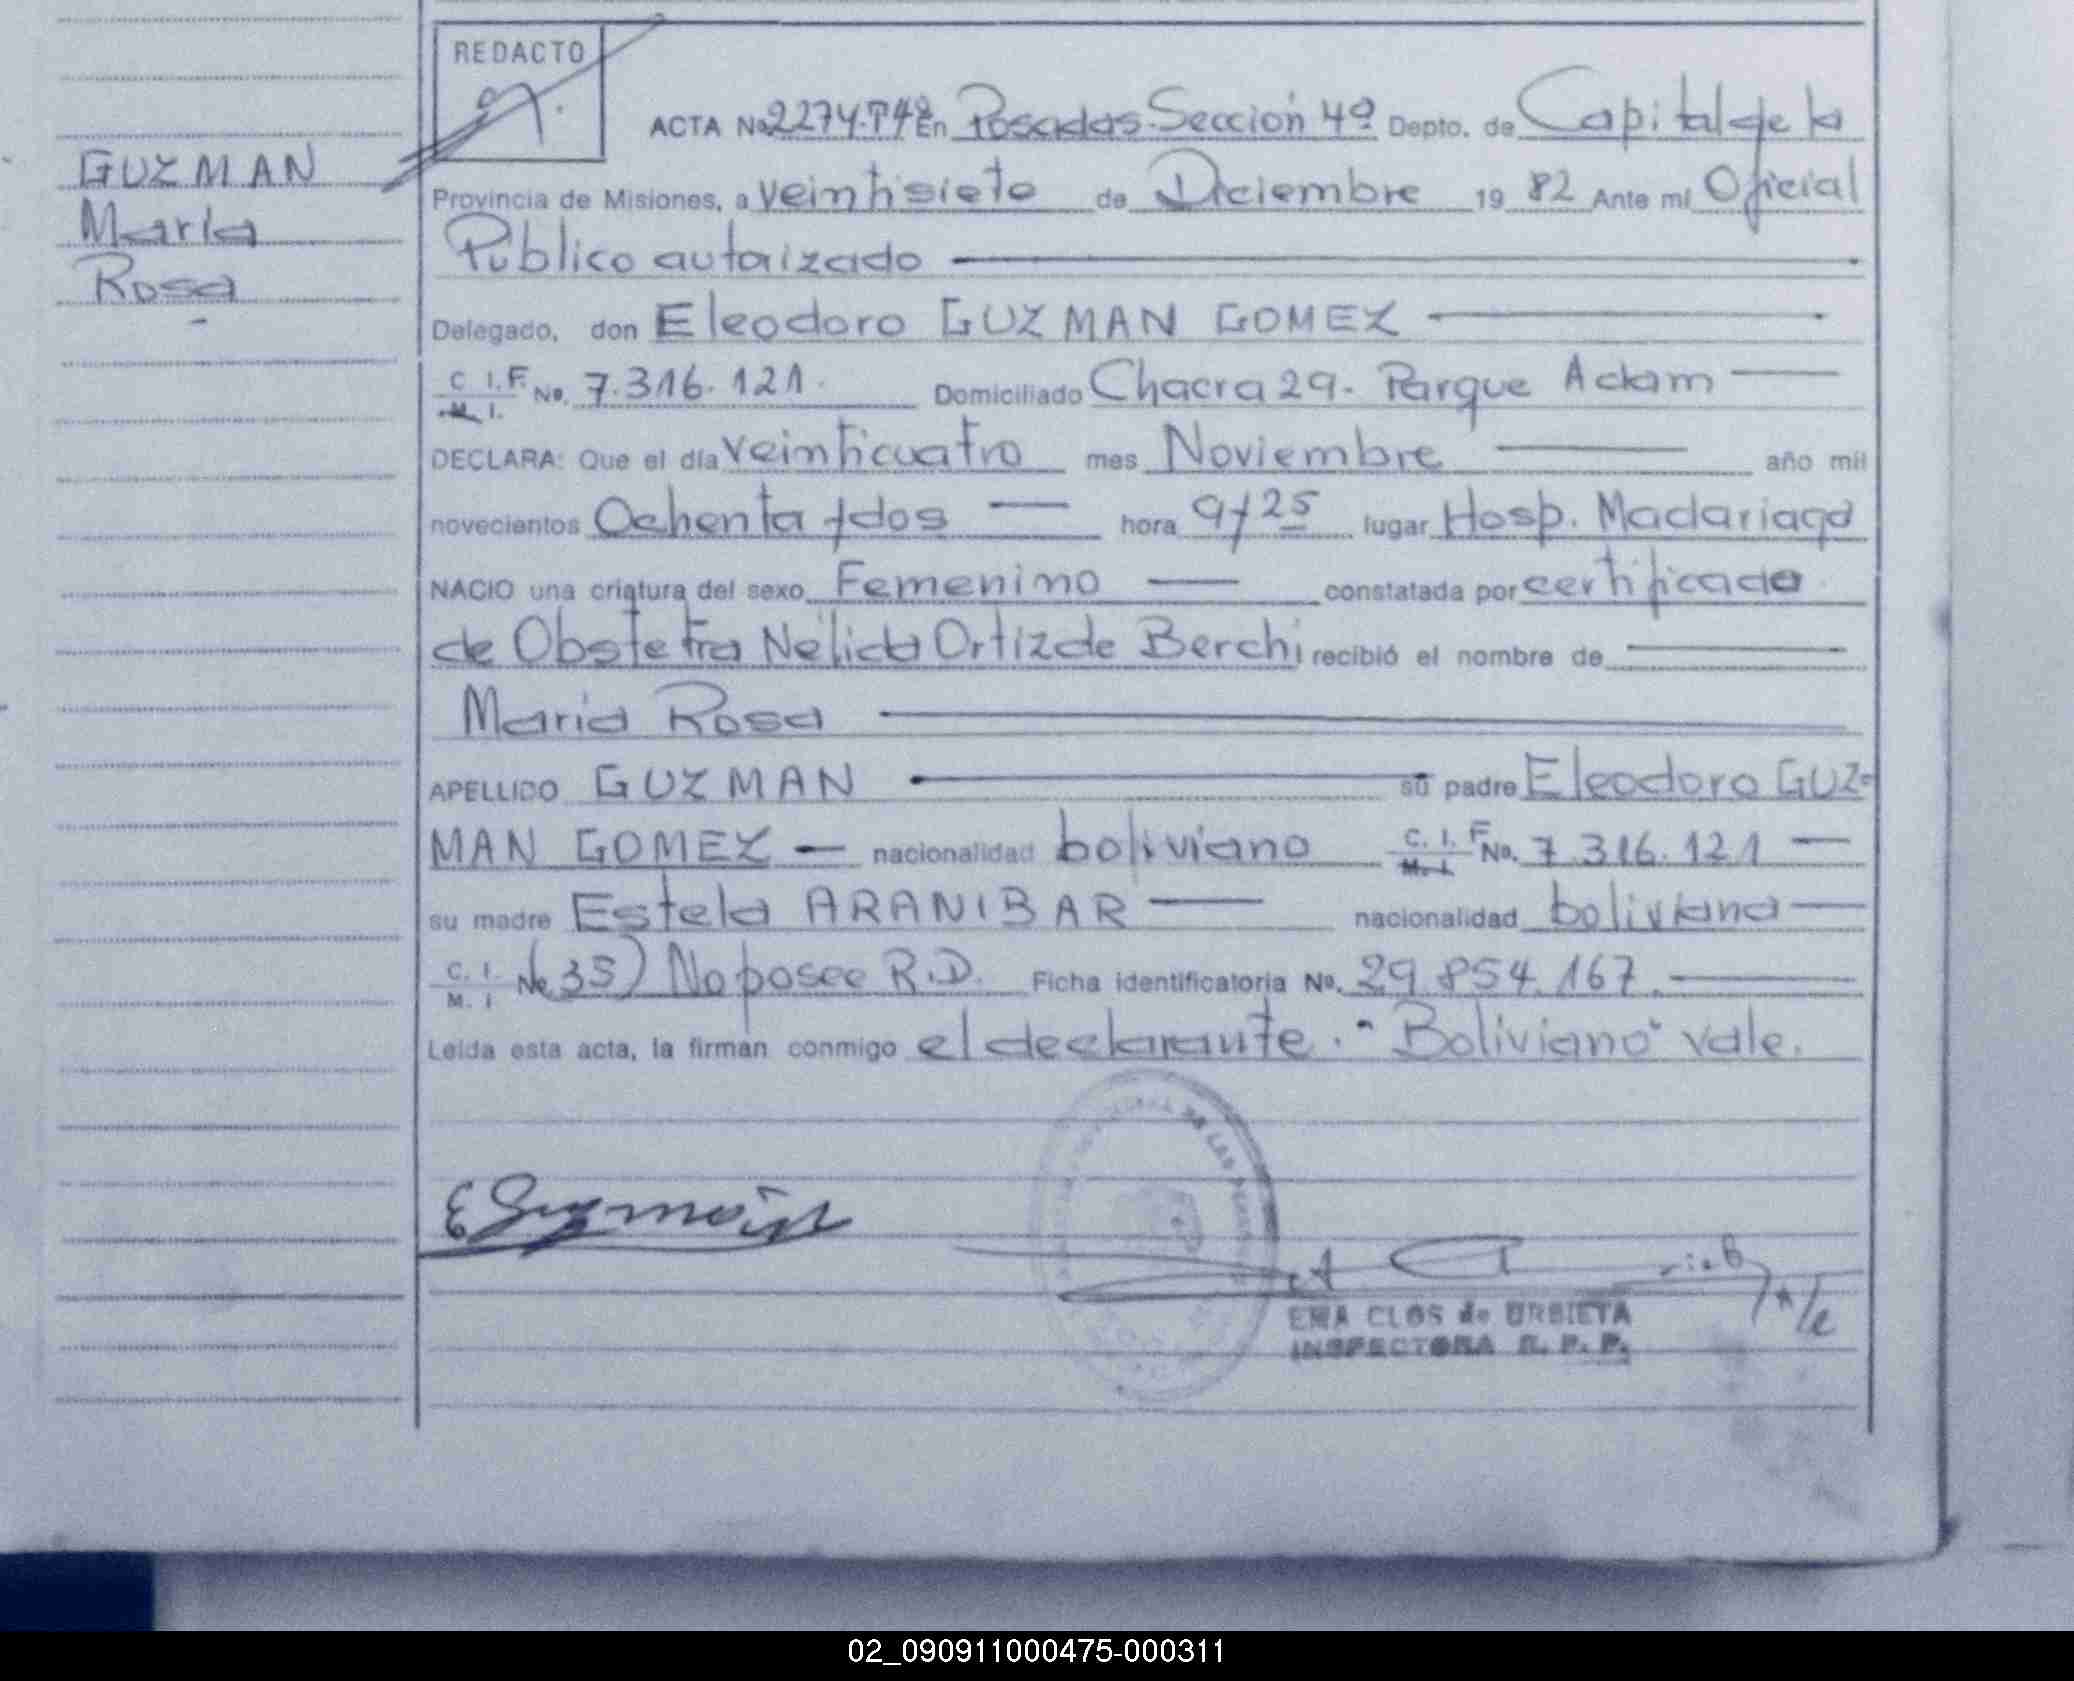 REDACTO
ACTA No 2274.T4º En Posadas-Sección 4º Depto. de Capital de la
GUZMAN
María
Rosa
Provincia de Misiones, a veintisiete de Diciembre 19 82 Ante mí Oficial
Público autorizado
Delegado, don Eleodoro GUZMAN GOMEZ
C.I.F. M.I. No. 7.316.121. Domiciliado Chacra 29. Parque Adam
DECLARA: Que el día veinticuatro mes Noviembre año mil
novecientos Ochenta y dos hora 9 y 25 lugar Hosp. Madariaga
NACIO una criatura del sexo Femenino constatada por certificado
de Obstetra Nélida Ortiz de Berchi recibió el nombre de
María Rosa
APELLIDO GUZMAN su padre Eleodoro GUZ-
MAN GOMEZ nacionalidad boliviano C.I.F. M.I. No. 7.316.121
su madre Estela ARANIBAR nacionalidad boliviana
C.I. M.I No (35) No posee R.D. Ficha identificatoria No. 29.854.167.
Leída esta acta, la firman conmigo el declarante. "Boliviano" vale.
E Guzmán
DE LAS
EMA CLOS de URBIETA
INSPECTORA R. P. P.
02_090911000475-000311